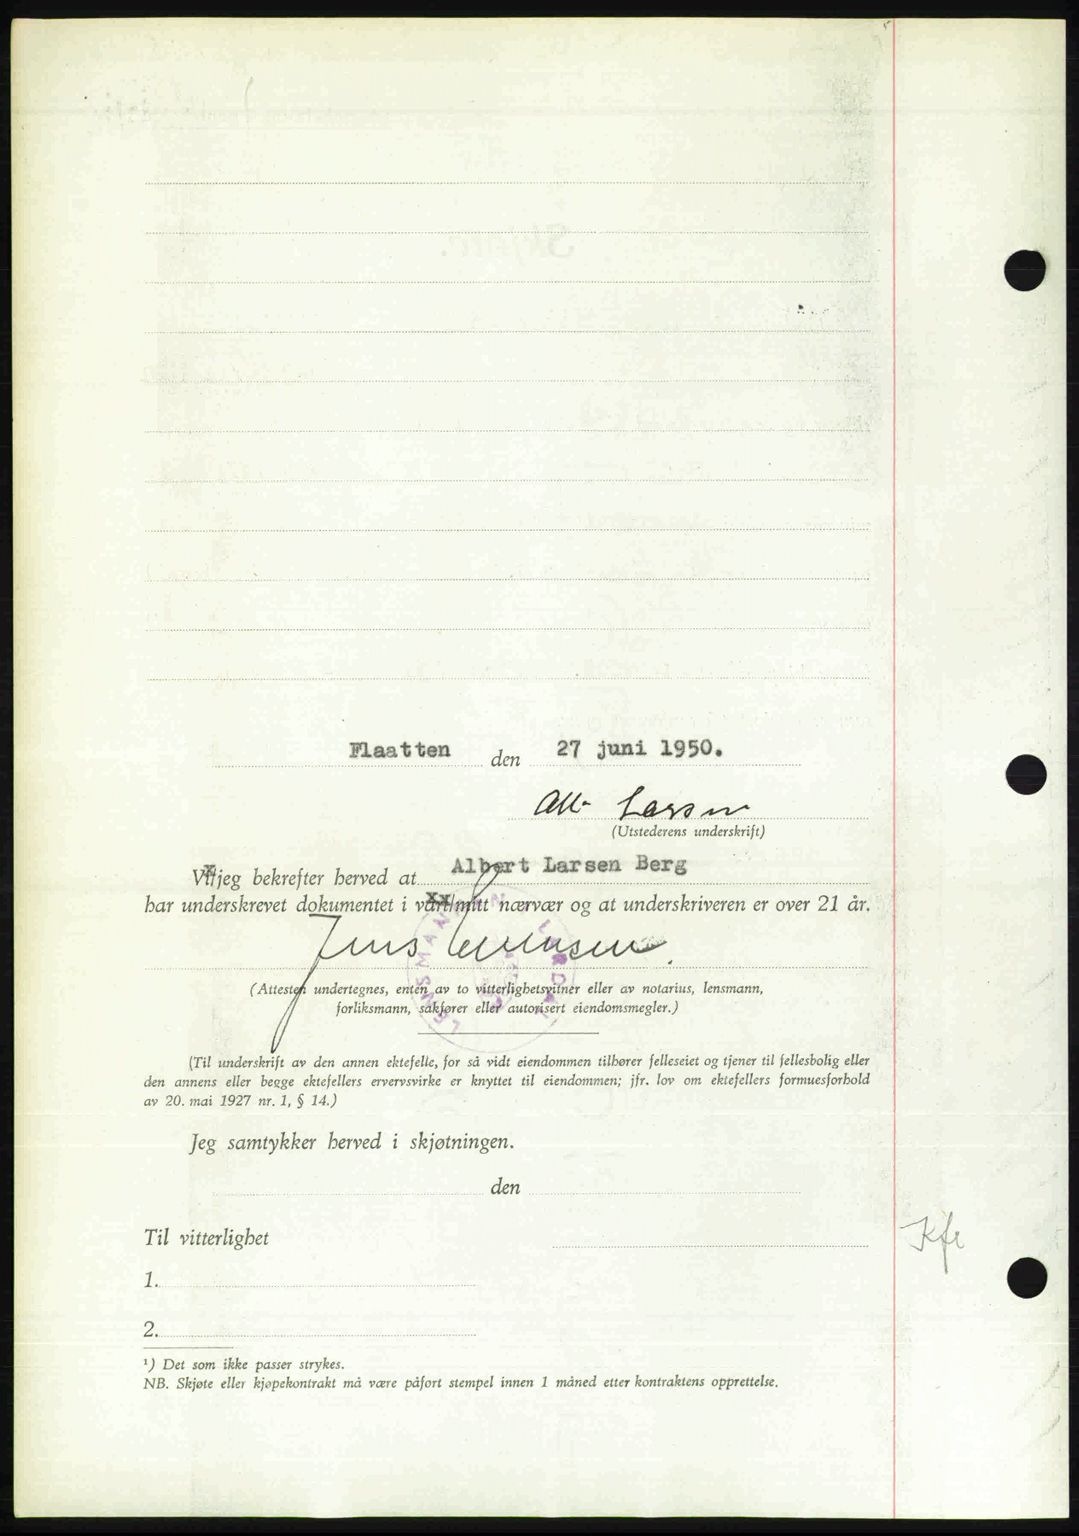 Flaatten den 27 juni 1950.
Larsen
(Utstederens underskrift)
Vi/jeg bekrefter herved at Albert Larsen Berg
har underskrevet dokumentet i vårt/mitt nærvær og at underskriveren er over 21 år.
Jens Sørensen.
LENSMANNEN I LARDAL
(Attesten undertegnes, enten av to vitterlighetsvitner eller av notarius, lensmann,
forliksmann, sakfører eller autorisert eiendomsmegler.)
(Til underskrift av den annen ektefelle, for så vidt eiendommen tilhører felleseiet og tjener til fellesbolig eller
den annens eller begge ektefellers ervervsvirke er knyttet til eiendommen; jfr. lov om ektefellers formuesforhold
av 20. mai 1927 nr. 1, § 14.)
Jeg samtykker herved i skjøtningen.
den
Til vitterlighet
Kfr
1.
2.
¹) Det som ikke passer strykes.
NB. Skjøte eller kjøpekontrakt må være påført stempel innen 1 måned etter kontraktens opprettelse.